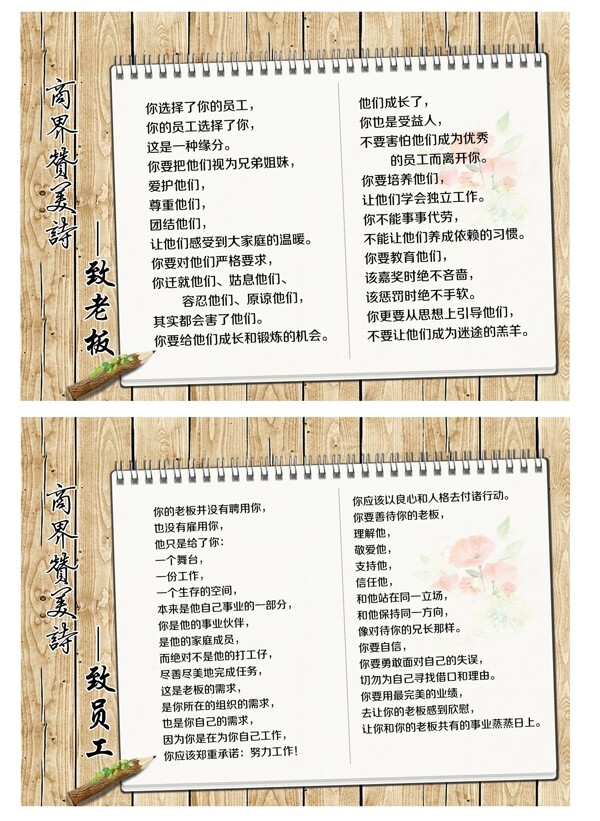 商界赞美詩
——致老板
你选择了你的员工，
你的员工选择了你，
这是一种缘分。
你要把他们视为兄弟姐妹，
爱护他们，
尊重他们，
团结他们，
让他们感受到大家庭的温暖。
你要对他们严格要求，
你迁就他们、姑息他们、
容忍他们、原谅他们，
其实都会害了他们。
你要给他们成长和锻炼的机会。
他们成长了，
你也是受益人，
不要害怕他们成为优秀
的员工而离开你。
你要培养他们，
让他们学会独立工作。
你不能事事代劳，
不能让他们养成依赖的习惯。
你要教育他们，
该嘉奖时绝不吝啬，
该惩罚时绝不手软。
你更要从思想上引导他们，
不要让他们成为迷途的羔羊。
商界赞美詩
——致员工
你的老板并没有聘用你，
也没有雇用你，
他只是给了你：
一个舞台，
一份工作，
一个生存的空间，
本来是他自己事业的一部分，
你是他的事业伙伴，
是他的家庭成员，
而绝对不是他的打工仔，
尽善尽美地完成任务，
这是老板的需求，
是你所在的组织的需求，
也是你自己的需求，
因为你是在为你自己工作，
你应该郑重承诺：努力工作！
你应该以良心和人格去付诸行动。
你要善待你的老板，
理解他，
敬爱他，
支持他，
信任他，
和他站在同一立场，
和他保持同一方向，
像对待你的兄长那样。
你要自信，
你要勇敢面对自己的失误，
切勿为自己寻找借口和理由。
你要用最完美的业绩，
去让你的老板感到欣慰，
让你和你的老板共有的事业蒸蒸日上。